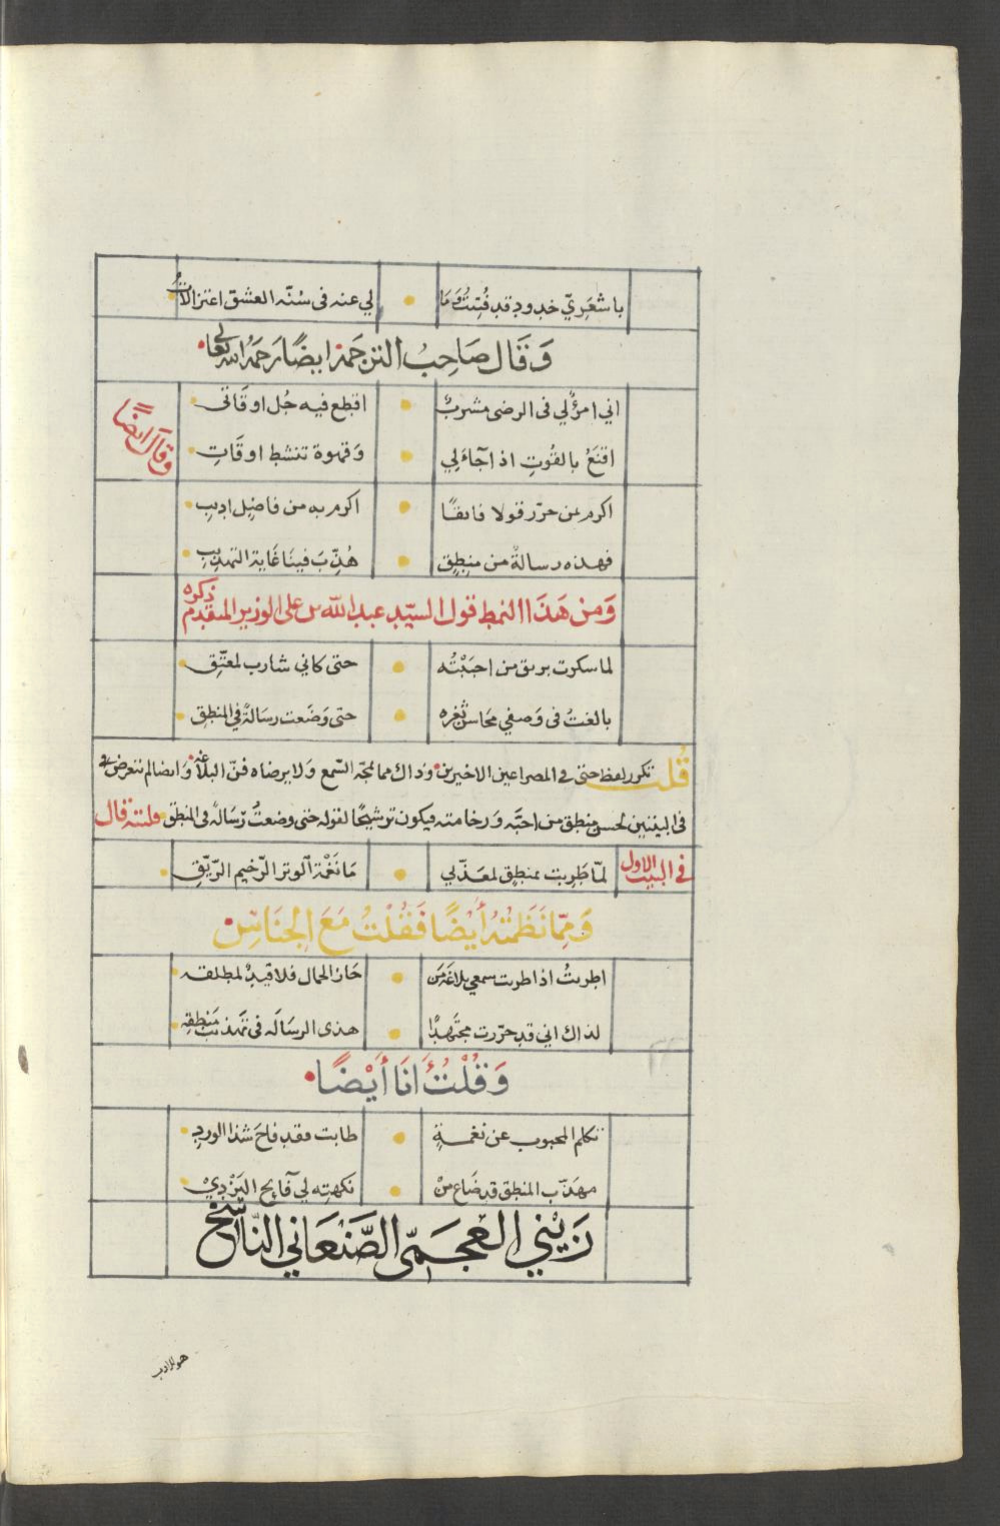 باشعري خدود قد فتنت وما • لي عنه في سنه العشق اعتزالات
وقال صاحب الترجمة ايضا رحمه الله تعالى
اني امرؤ لي في الرضى مشرب • اقطع فيه جل اوقاتي
اقنع بالقوت اذا جاء لي • وقهوة تنشط اوقات
وقال ايضا
اكرم بمن حرر قولا فايقا • اكرم به من فاضل اديب
فهذه رسالة من منطق • هذب فينا غاية التهذيب
ومن هذا النمط قول السيد عبد الله بن علي الوزير المتقدم ذكره
لما سكرت بريق من احببته • حتى كاني شارب لمعتق
بالغت في وصفي محاسن ثغره • حتى وضعت رسالة في المنطق
قلت تكرر لفظ حتى في المصراعين الاخيرين وذاك مما يمجه السمع ولا يرضاه فن البلاغة وايضا لم نتعرض
في البيتين لحسن منطق من احبه ورخامته فيكون ترشيحا لقوله حتى وضعت رسالة في المنطق فليته قال
في البيت الاول لما طربت بمنطق لمعذبي • ما نغمة الوتر الرخيم الريق
ومما نظمته أيضا فقلت مع الجناس
اطربت اذ اطربت سمعي بلاغة من • حاز الجمال فلا قيد لمطلقه
لذاك اني قد حررت مجتهدا • هذى الرساله في تهذيب منطقه
وقلت أنا أيضا
تكلم المحبوب عن نغمة • طابت فقد فاح شذا الورد
مهذب المنطق قد ضاع من • نكهته لي فايح اليزدي
زيني العجمي الصنعاني الناسخ
هو الاديب